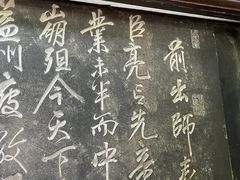 前出師表
臣亮言先帝
業未半而中
崩殂今天下
益州疲敝